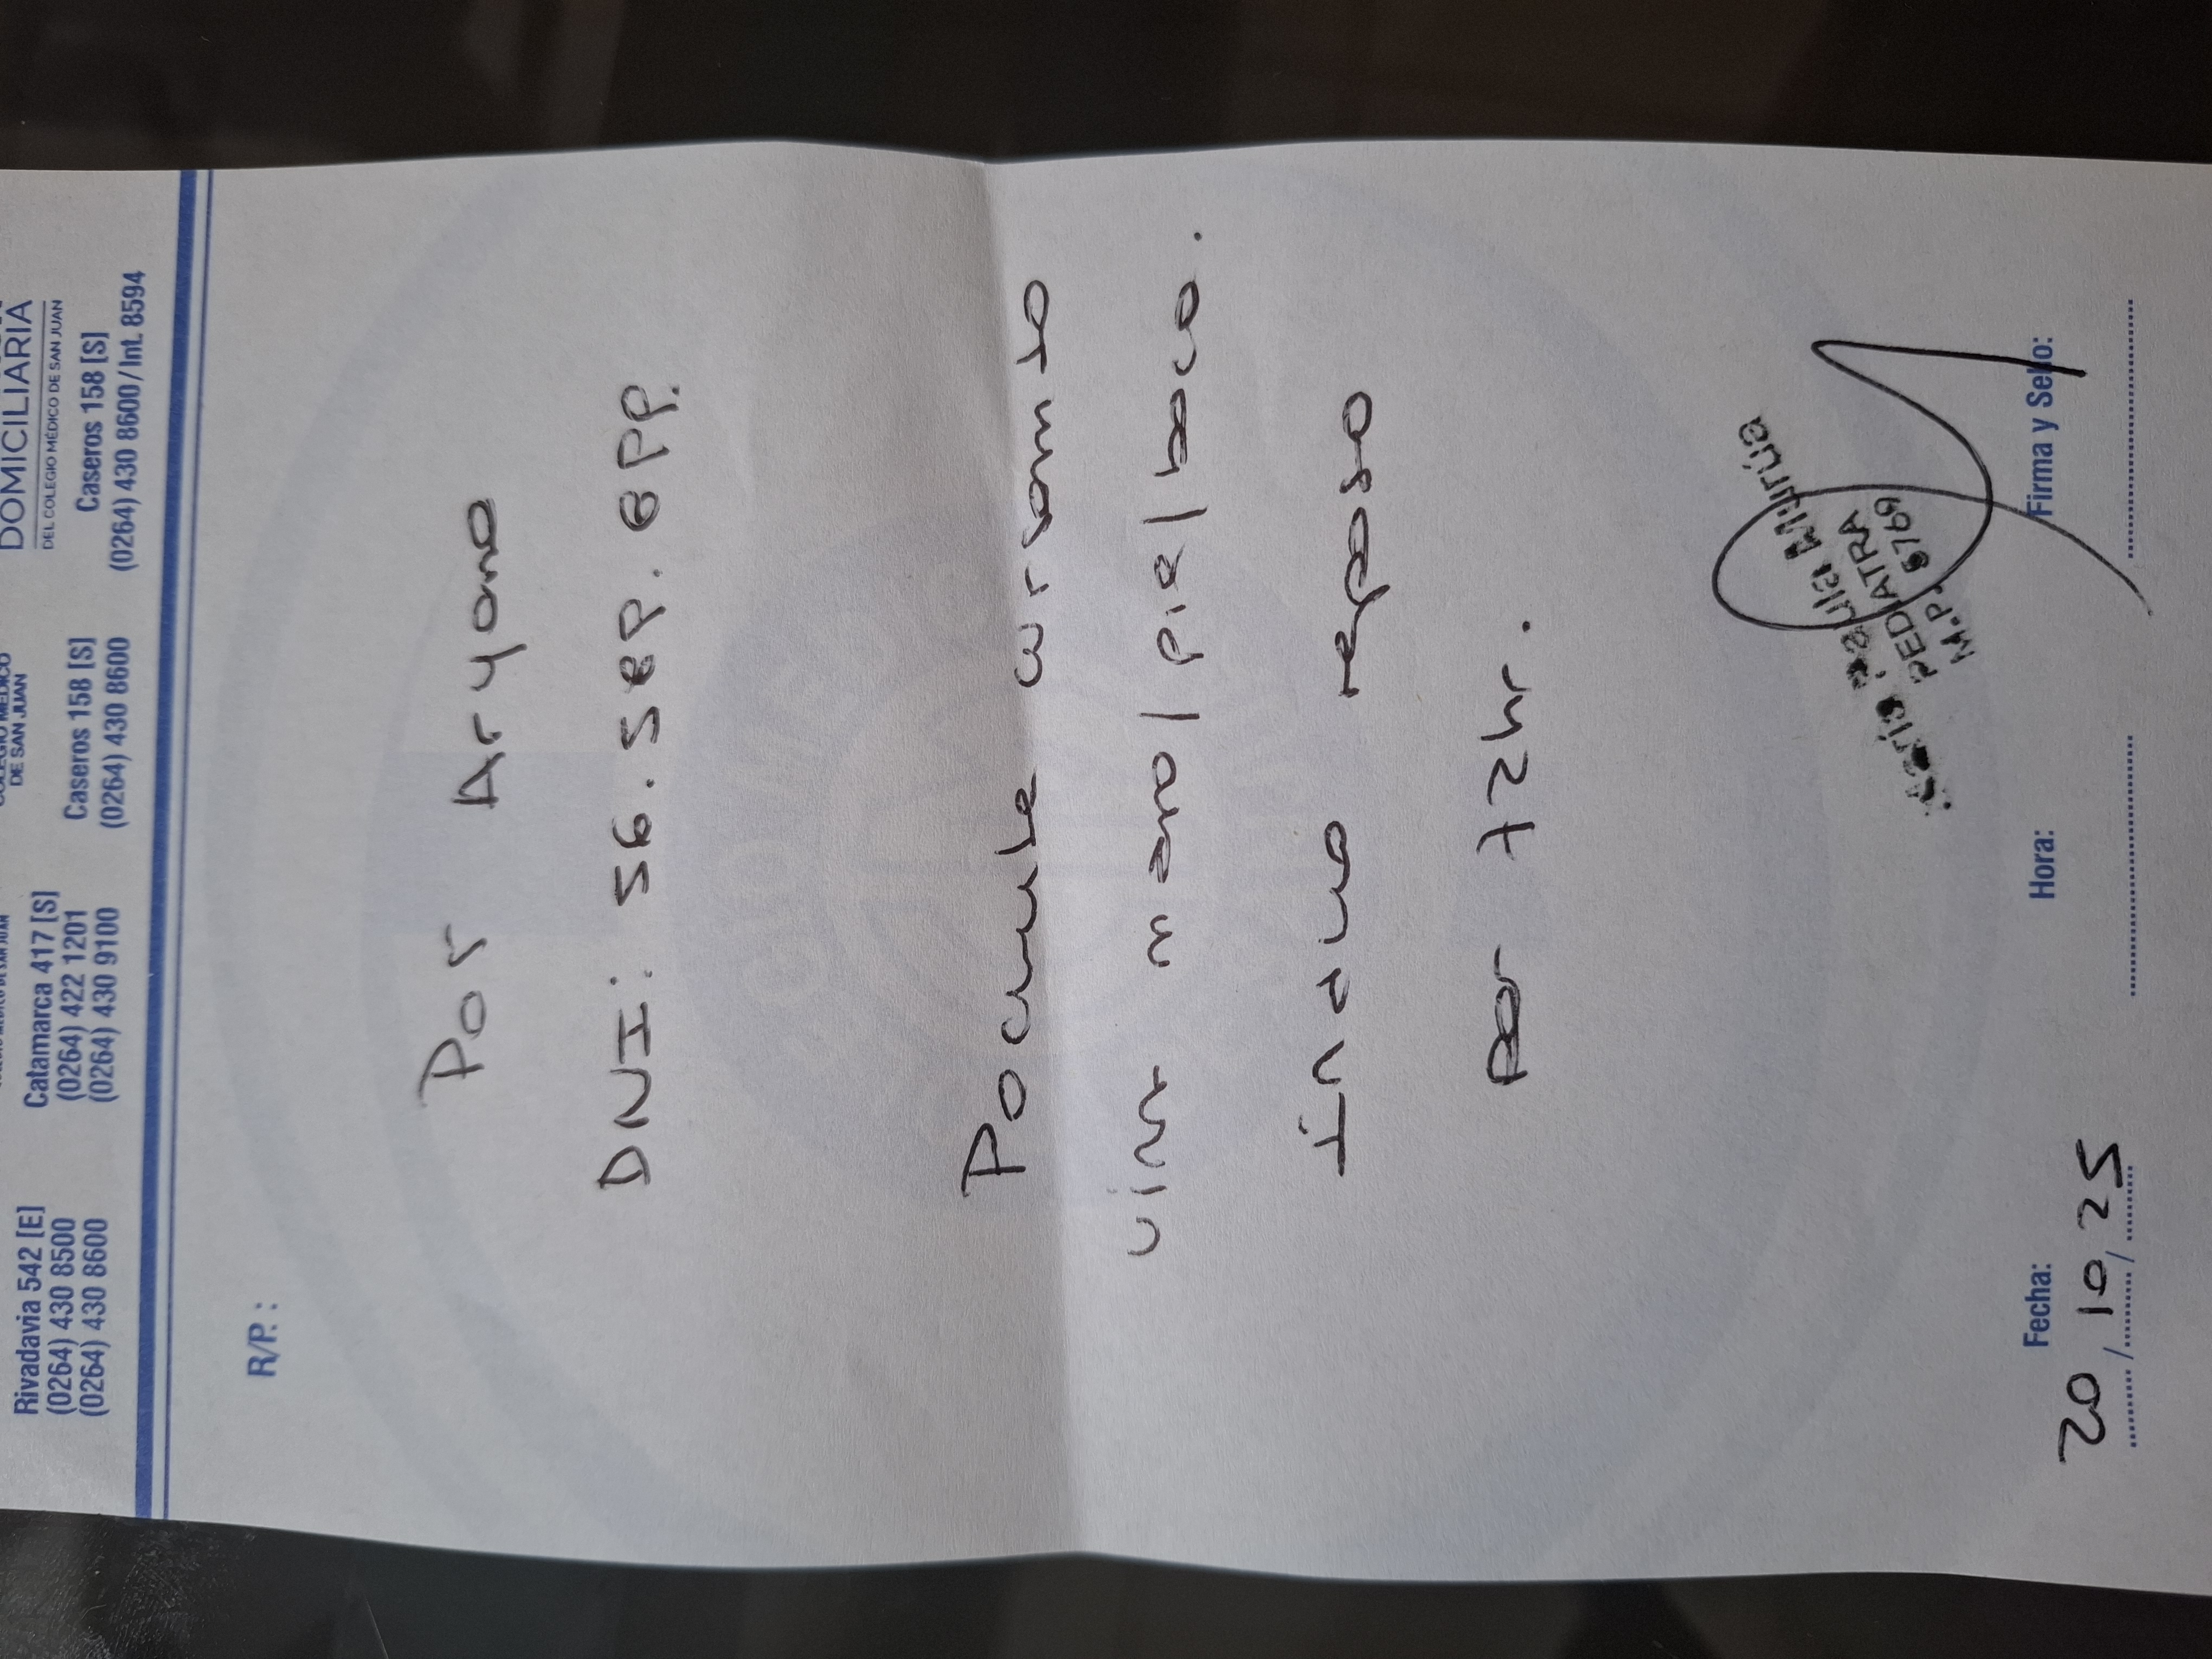 DOMICILIARIA
DEL COLEGIO MÉDICO DE SAN JUAN
DE SAN JUAN
Rivadavia 542 [E]
(0264) 430 8500
(0264) 430 8600
Catamarca 417 [S]
(0264) 422 1201
(0264) 430 9100
Caseros 158 [S]
(0264) 430 8600
Caseros 158 [S]
(0264) 430 8600/Int. 8594
R/P.:
Por Aryano
DNI: 56.589.899.
Paciente cursando
vírus mano/pie/boca.
Indico reposo
por 72hr.
María Paula Murúa
PEDIATRA
M.P. 5769
Fecha:
20/10/25
Hora:
Firma y Sello: